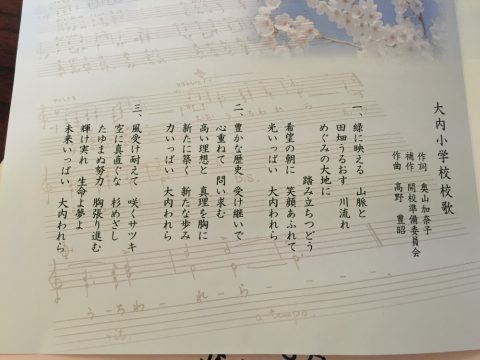 大内小学校校歌
作詞 奥山加奈子
補作 開校準備委員会
作曲 高野 豊昭
一、緑に映える 山脈と
田畑うるおす 川流れ
めぐみの大地に
踏み立ちつどう
希望の朝に 笑顔あふれて
光いっぱい 大内われら
二、豊かな歴史 受け継いで
心重ねて 問い求む
高い理想と 真理を胸に
新たに築く 新たな歩み
力いっぱい 大内われら
三、風受け耐えて 咲くサツキ
空に真直ぐな 杉めざし
たゆまぬ努力 胸張り進む
輝け実れ 生命よ夢よ
未来いっぱい 大内われら
う-ちわ-れ-ら-
rit.
a tempo